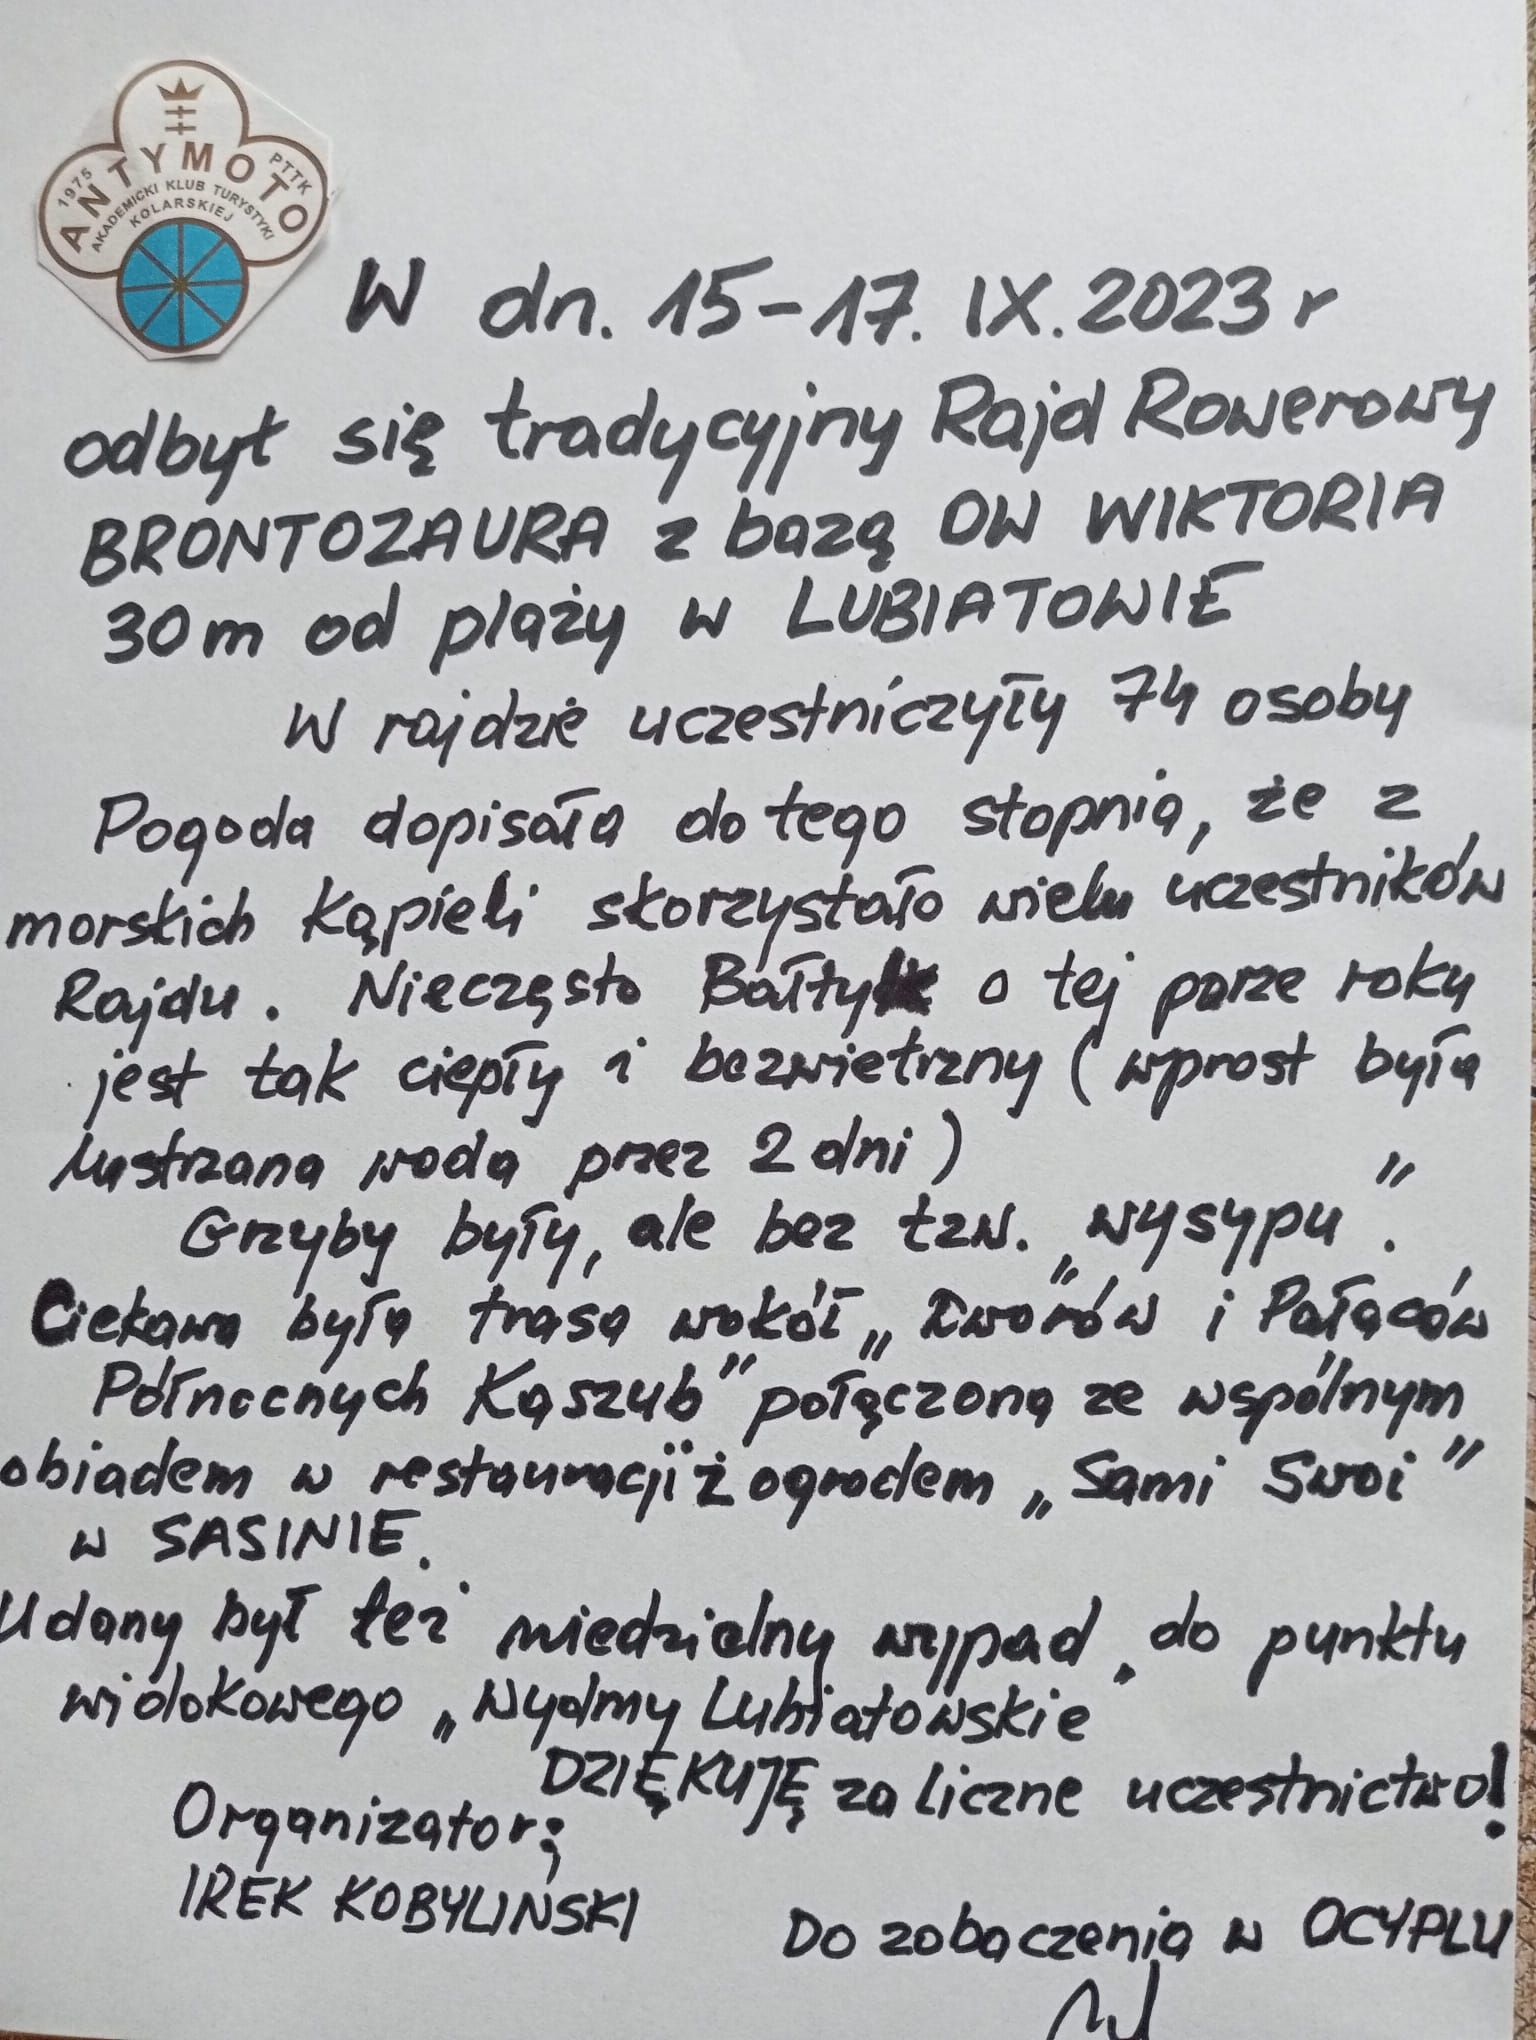 1975
ANTYMOTO
PTTK
AKADEMICKI KLUB TURYSTYKI
KOLARSKIEJ
W dn. 15-17. IX. 2023 r
odbył się tradycyjny Rajd Rowerowy
BRONTOZAURA z bazą OW WIKTORIA
30m od plaży w LUBIATOWIE
W rajdzie uczestniczyły 74 osoby
Pogoda dopisała do tego stopnia, że z
morskich kąpieli skorzystało wielu uczestników
Rajdu. Nieczęsto Bałtyk o tej porze roku
jest tak ciepły i bezwietrzny (wprost była
lustrzana woda przez 2 dni)
Grzyby były, ale bez tzw. „wysypu”.
Ciekawa była trasa wokół „Dworów i Pałaców
Północnych Kaszub” połączona ze wspólnym
obiadem w restauracji z ogrodem „Sami Swoi”
w SASINIE.
Udany był też niedzielny wypad do punktu
widokowego „Wydmy Lubiatowskie
DZIĘKUJĘ za liczne uczestnictwo!
Organizator:
IREK KOBYLIŃSKI
Do zobaczenia w OCYPLU